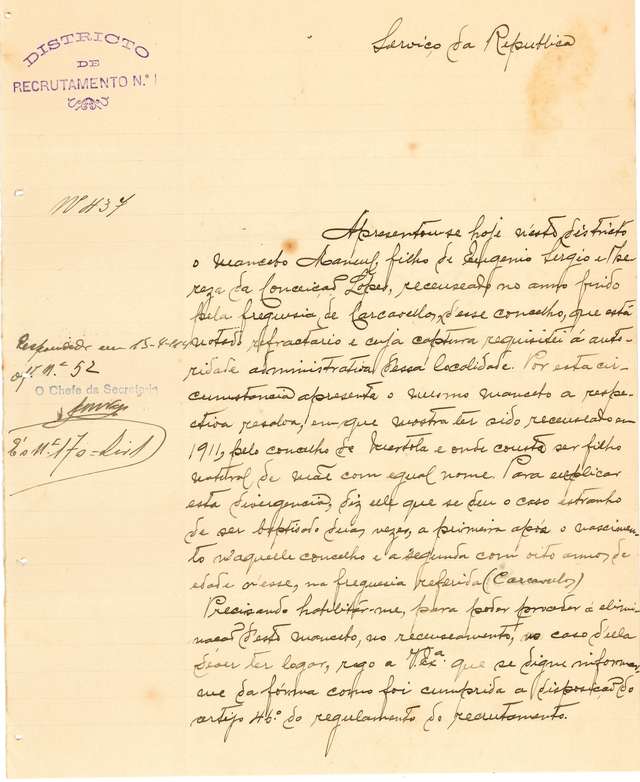 DISTRICTO
DE
RECRUTAMENTO N.º 1
Serviço da Republica
Nº 437
Apresentou-se hoje n'este districto
o mancebo Manuel, filho de Eugenio Sergio e The-
reza da Conceição Lopes, recenseado no anno findo
pela freguesia de Carcavellos, d'esse concelho, que está
notado refractario e cuja captura requisitei á auto-
ridade administrativa d'essa localidade. Por esta cir-
cumstancia apresenta o mesmo mancebo a respe-
ctiva resalva, em que mostra ter sido recenseado em
1911, pelo concelho de Mertola e onde consta ser filho
natural de mãe com egual nome. Para explicar
esta divergencia, diz elle que se deu o caso estranho
de ser baptisado duas vezes, a primeira após o nascimen-
to n'aquelle concelho e a segunda com oito annos de
edade n'esse, na freguesia referida (Carcavelos)
Precisando habilitar-me, para poder proceder á elimi-
nação d'este mancebo, no recenseamento, no caso d'ella
dever ter logar, rogo a V. Ex.ª que se digne informar-
me da fórma como foi cumprida a disposição do
artigo 46.º do regulamento do recrutamento.
Respondido em 13-4-
of. N.º 52
O Chefe da Secretaria
N.º 170